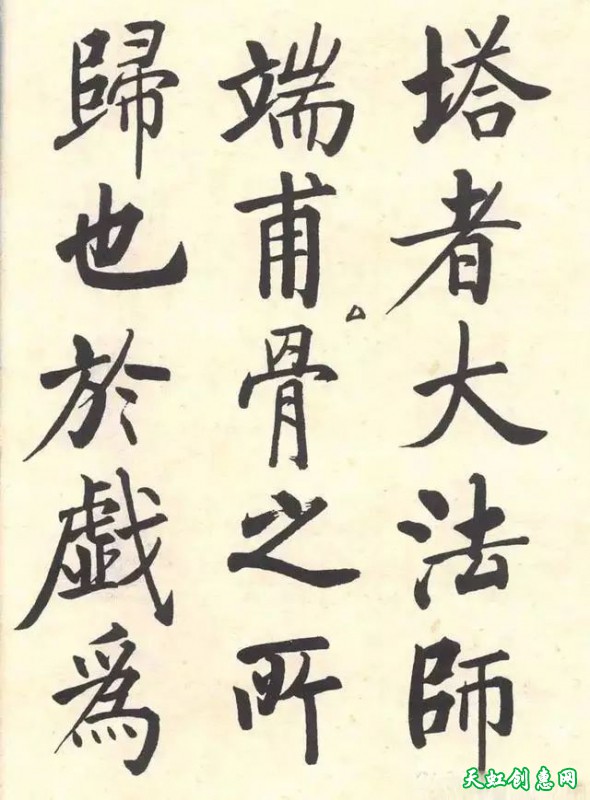 塔者大法師
端甫骨之所
歸也於戯為
天虹创意网